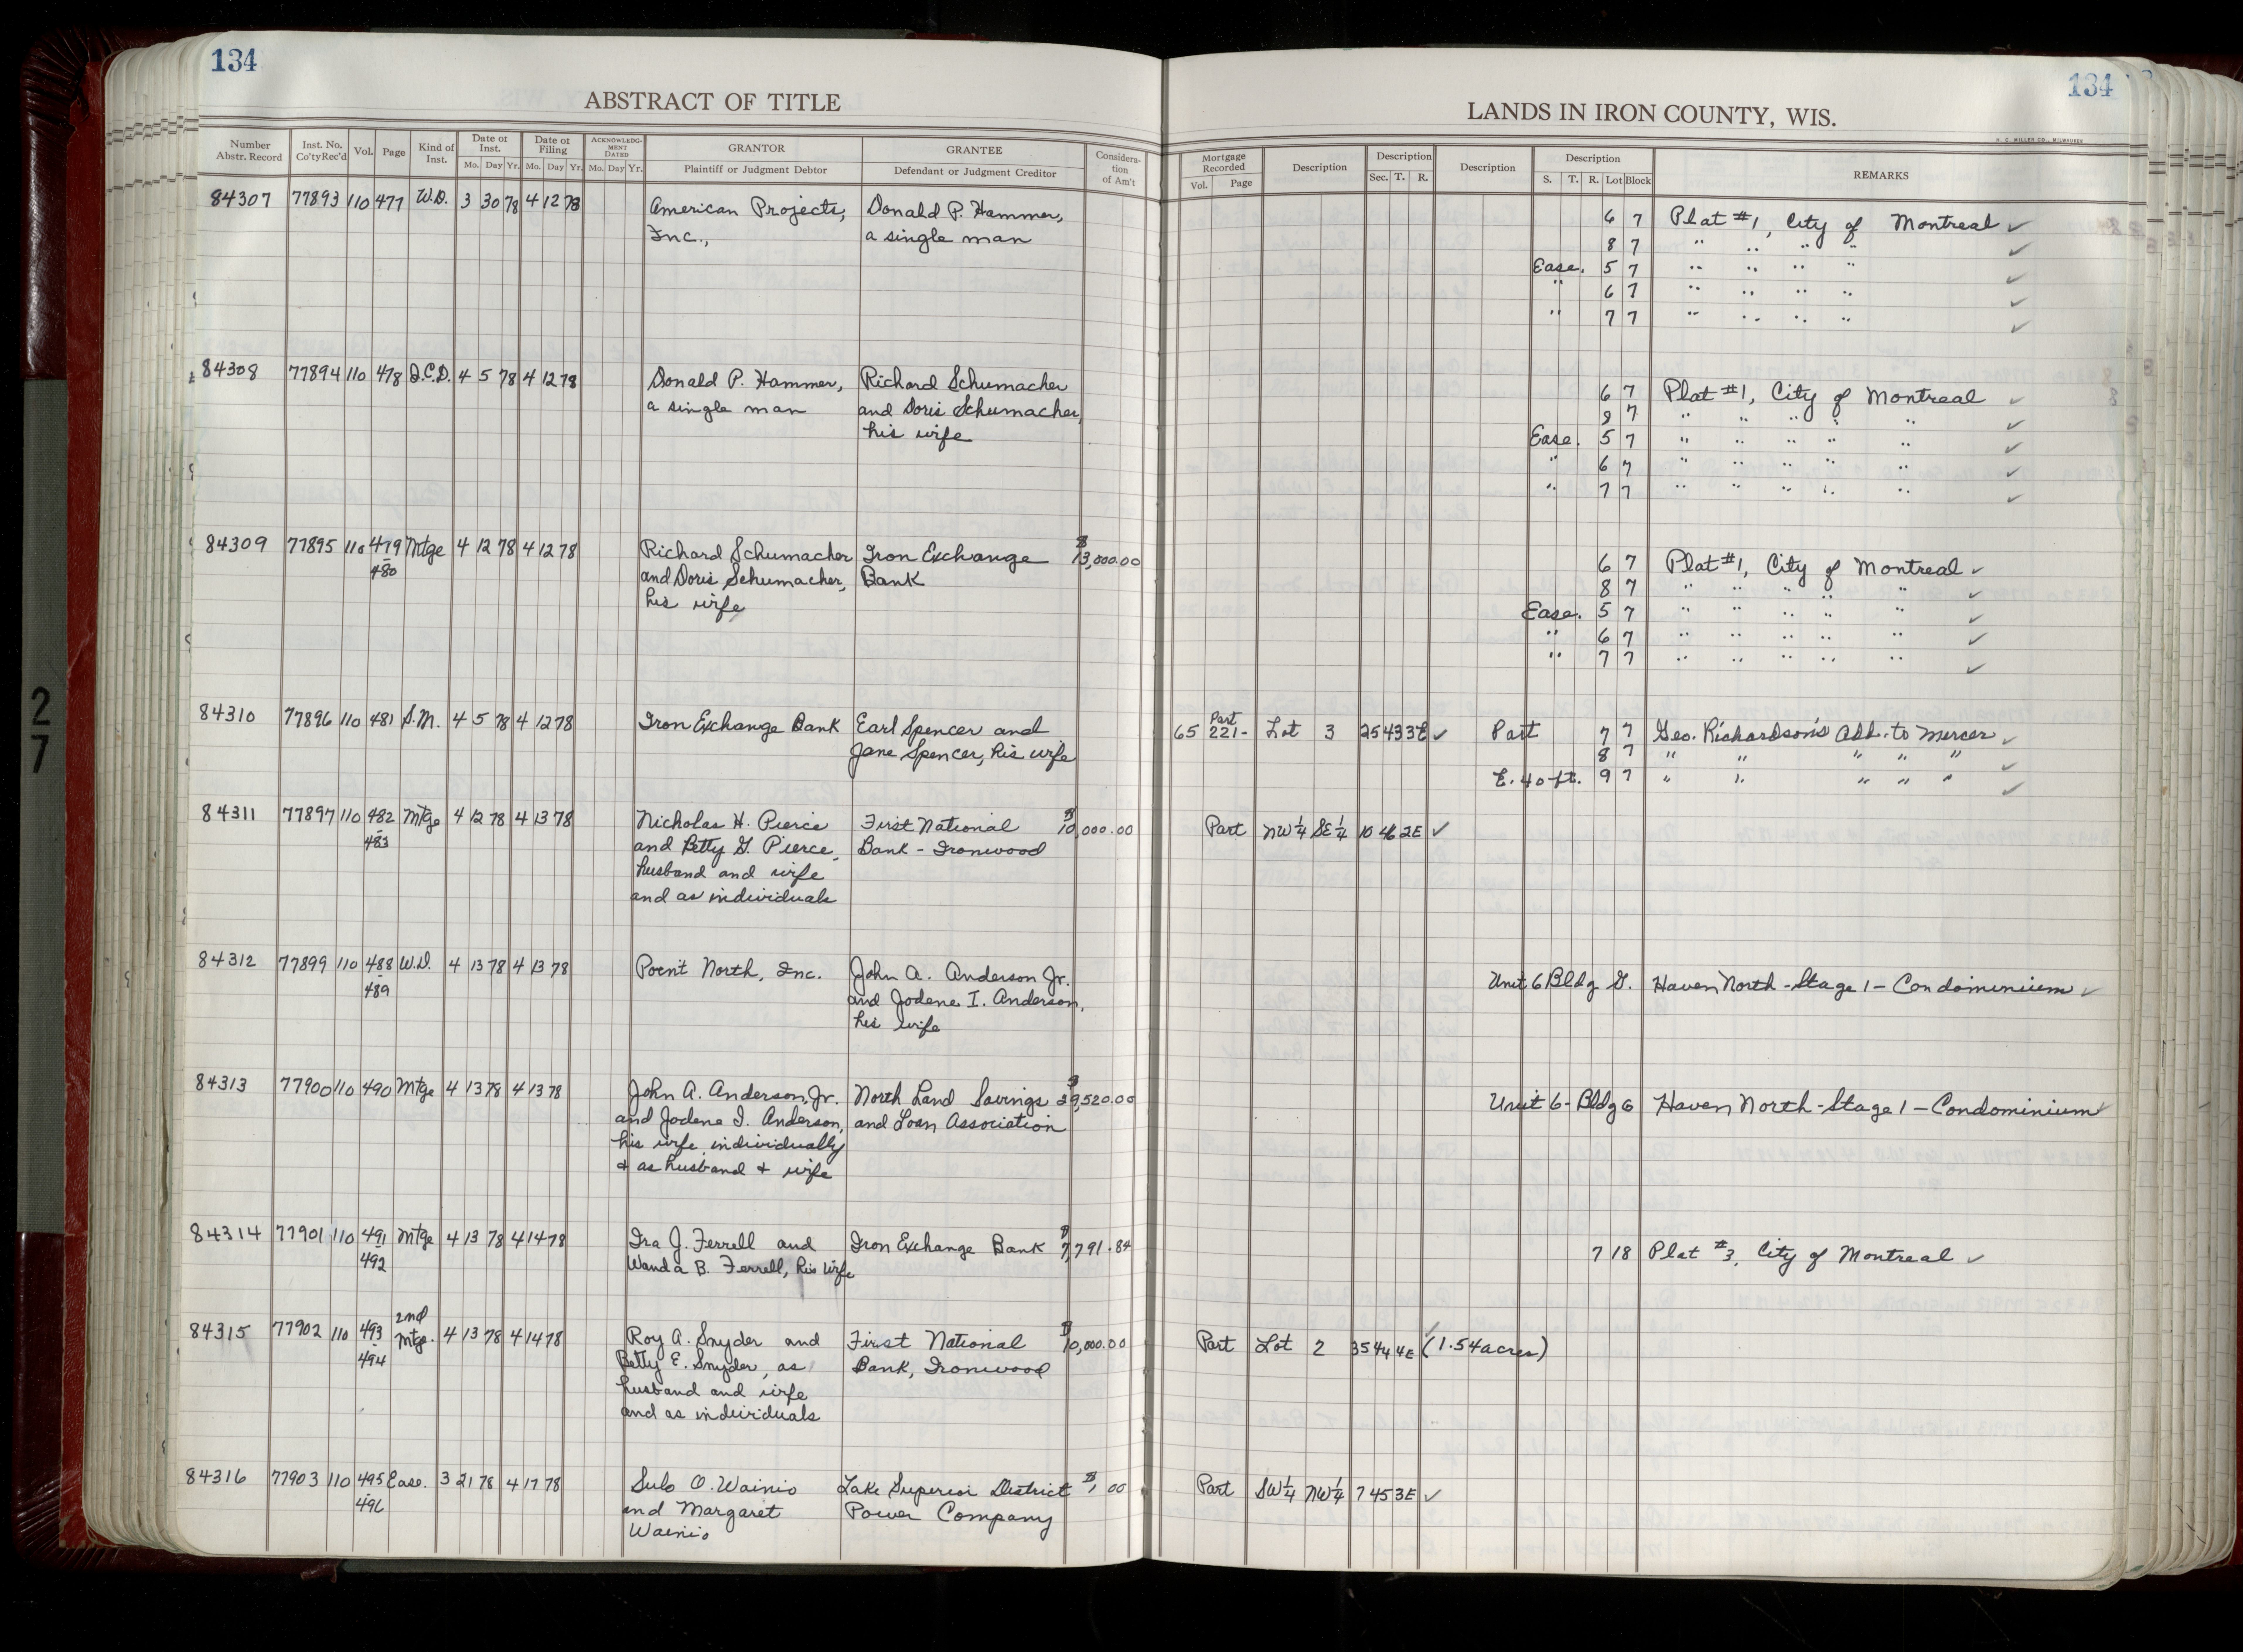 134
134
ABSTRACT OF TITLE
LANDS IN IRON COUNTY, WIS.
H. C. MILLER CO., MILWAUKEE
Number Abstr. Record | Inst. No. Co'ty Rec'd | Vol. | Page | Kind of Inst. | Date of Inst. Mo. Day Yr. | Date of Filing Mo. Day Yr. | ACKNOWLEDG-MENT DATED Mo. Day Yr. | GRANTOR Plaintiff or Judgment Debtor | GRANTEE Defendant or Judgment Creditor | Considera-tion of Am't | Mortgage Recorded Vol. Page | Description | Description Sec. T. R. | Description | Description S. T. R. Lot Block | REMARKS
84307 77893 110 477 W.D. 3 30 78 4 12 78 American Projects, Donald P. Hammer, 6 7 Plat #1, City of Montreal ✓
Inc., a single man 8 7 " " " " ✓
Ease. 5 7 " " " " ✓
" 6 7 " " " " ✓
" 7 7 " " " " ✓
84308 77894 110 478 Q.C.D. 4 5 78 4 12 78 Donald P. Hammer, Richard Schumacher 6 7 Plat #1, City of Montreal ✓
a single man and Doris Schumacher, 8 7 " " " " " ✓
his wife Ease. 5 7 " " " " " ✓
" 6 7 " " " " " ✓
" 7 7 " " " " " ✓
84309 77895 110 479 Mtge 4 12 78 4 12 78 Richard Schumacher Iron Exchange $13,000.00 6 7 Plat #1, City of Montreal ✓
480 and Doris Schumacher, Bank 8 7 " " " " " ✓
his wife Ease. 5 7 " " " " " ✓
" 6 7 " " " " " ✓
" 7 7 " " " " " ✓
84310 77896 110 481 S.M. 4 5 78 4 12 78 Iron Exchange Bank Earl Spencer and 65 Part 221- Lot 3 25 43 3E ✓ Part 7 7 Geo. Richardson's Add. to Mercer ✓
Jane Spencer, his wife 8 7 " " " " " ✓
E. 40 ft. 9 7 " " " " " ✓
84311 77897 110 482 Mtge 4 12 78 4 13 78 Nicholas H. Pierce First National $10,000.00 Part NW¼ SE¼ 10 46 2E ✓
-483 and Betty G. Pierce, Bank - Ironwood
husband and wife
and as individuals
84312 77899 110 488 W.D. 4 13 78 4 13 78 Point North, Inc. John A. Anderson Jr. Unit 6 Bldg G. Haven North - Stage 1 - Condominium ✓
-489 and Jodene I. Anderson,
his wife
84313 77900 110 490 Mtge 4 13 78 4 13 78 John A. Anderson, Jr. North Land Savings $39,520.00 Unit 6 - Bldg G Haven North - Stage 1 - Condominium ✓
and Jodene I. Anderson, and Loan Association
his wife, individually
+ as husband + wife
84314 77901 110 491 Mtge 4 13 78 4 14 78 Ira J. Ferrell and Iron Exchange Bank $7,791.84 7 18 Plat #3, City of Montreal ✓
-492 Wanda B. Ferrell, his wife
84315 77902 110 493 2nd Mtge. 4 13 78 4 14 78 Roy A. Snyder and First National $10,000.00 Part Lot 2 35 44 4E ✓ (1.54 acres)
-494 Betty E. Snyder, as Bank, Ironwood
husband and wife
and as individuals
84316 77903 110 495 Ease. 3 21 78 4 17 78 Sulo O. Wainio Lake Superior District $1.00 Part SW¼ NW¼ 7 45 3E ✓
-496 and Margaret Power Company
Wainio
27